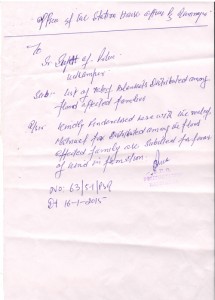 Office of the Station House officer P/S Ramnagar
To
Sr Supdt of Police
Udhampur
Sub:- list of relief Materials Distributed among
flood affected families
Sir,
Kindly find enclosed here with the list of
Material for Distributed among the flood
affected family are submitted for favour
of kind information
No: 63/5A/PSR
Dt 16-1-2015